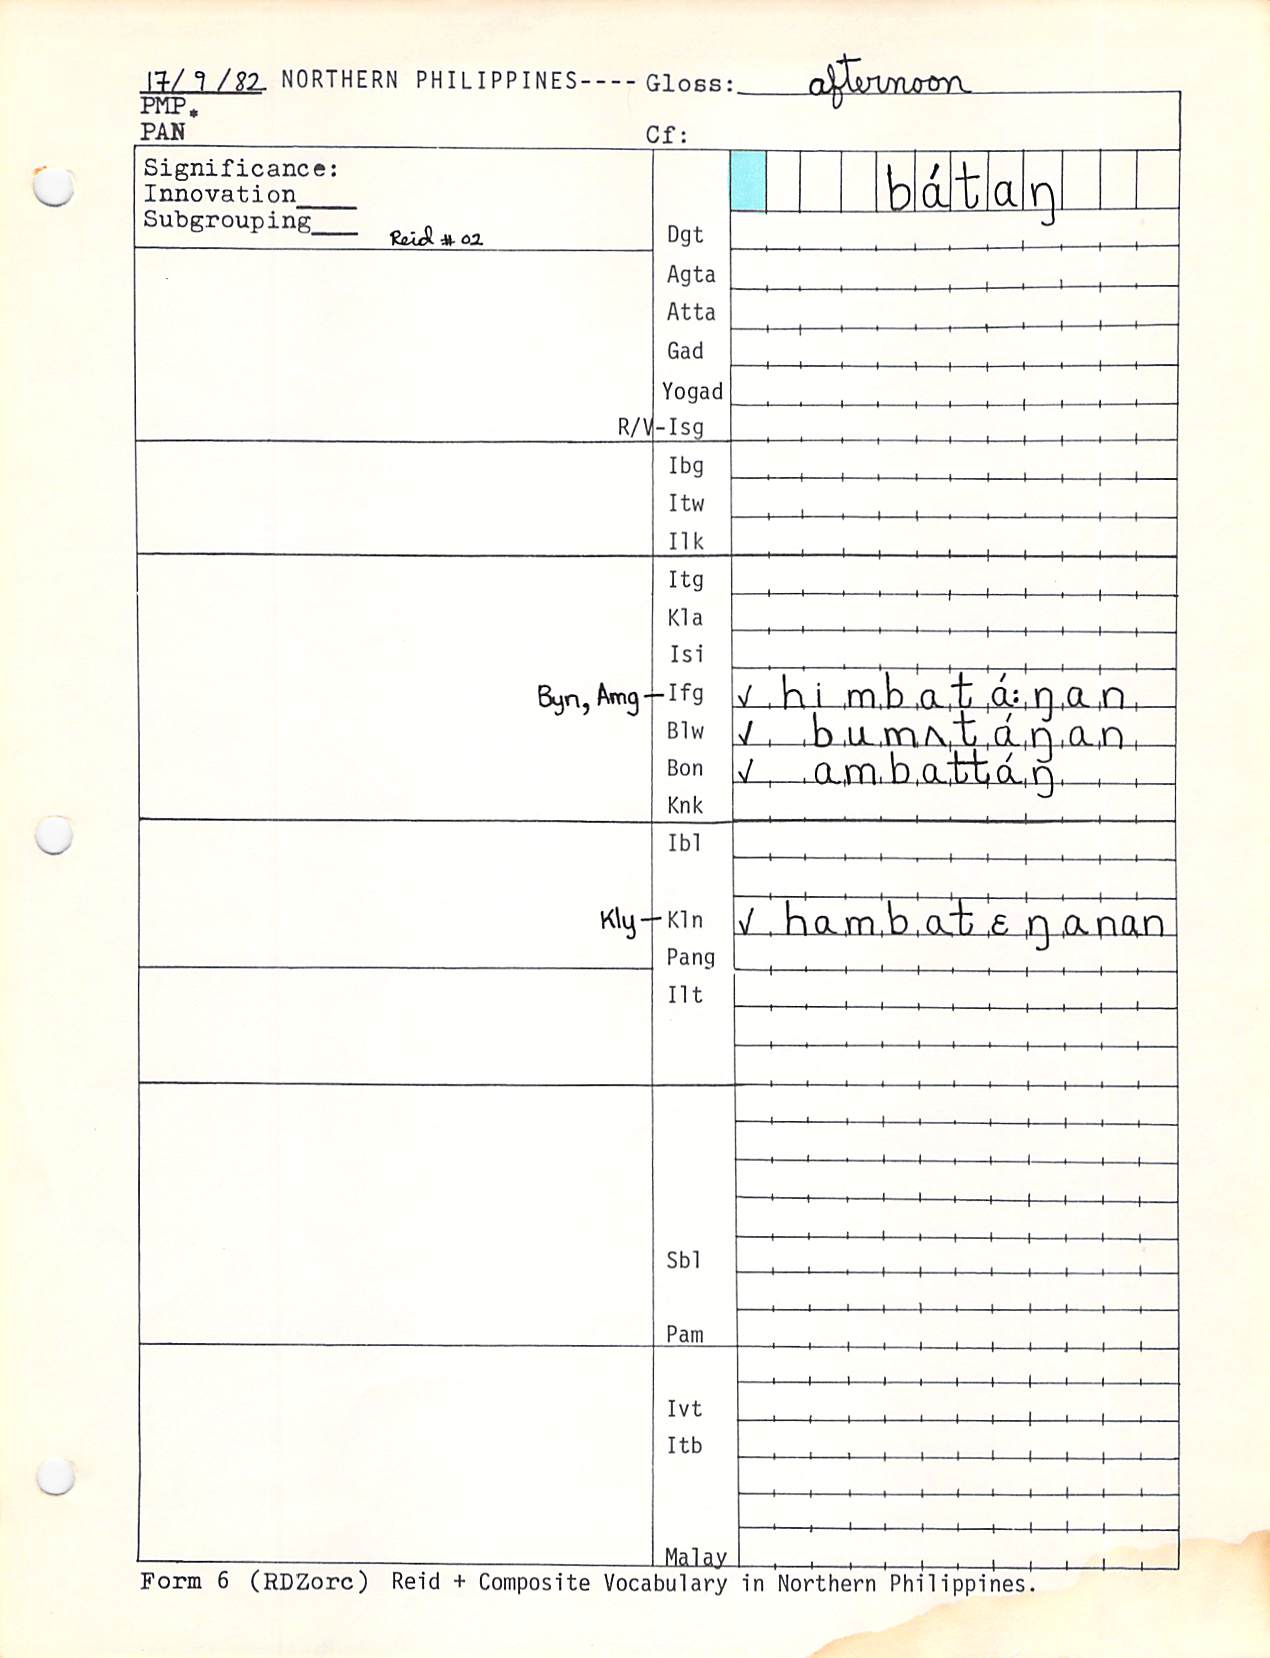 17/9/82 NORTHERN PHILIPPINES---- Gloss: afternoon
PMP*
PAN Cf:
Significance:
Innovation____
Subgrouping___ Reid # 02
bátaŋ
Dgt
Agta
Atta
Gad
Yogad
R/V-Isg
Ibg
Itw
Ilk
Itg
Kla
Isi
Byn, Amg—Ifg ✓ himbatá:ŋan
Blw ✓ bumʌtáŋan
Bon ✓ ambattáŋ
Knk
Ibl
Kly—Kln ✓ hambatɛŋanan
Pang
Ilt
Sbl
Pam
Ivt
Itb
Malay
Form 6 (RDZorc) Reid + Composite Vocabulary in Northern Philippines.